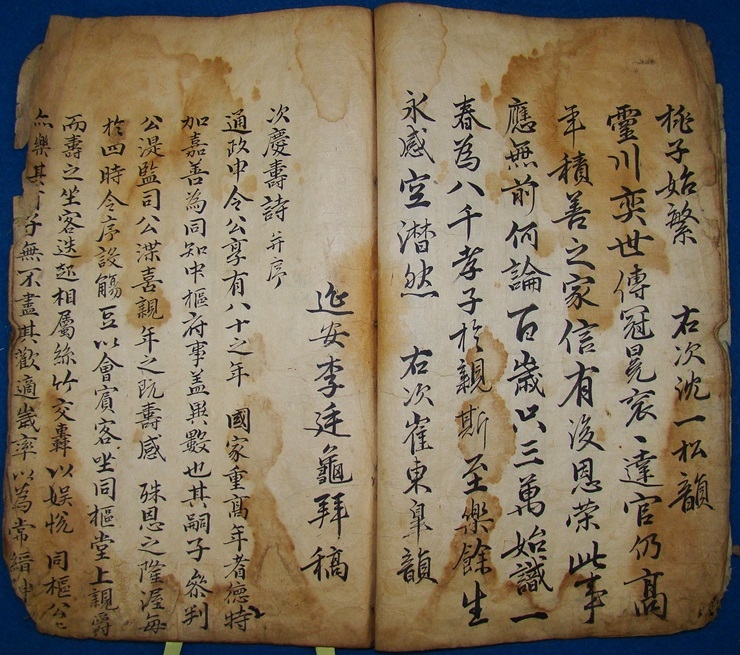 桃子始繁　右次沈一松韻
靈川奕世傳冠冕袞〻達官仍高
年積善之家信有後恩榮此事
應無前何論百歲只三萬始識一
春為八千孝子於親斯至樂餘生
永感空潸然　右次崔東皐韻
延安李廷龜拜稿
次慶壽詩 并序
通政中令公享有八十之年　國家重高年耆德特
加嘉善為同知中樞府事盖異數也其嗣子參判
公湜監司公渫喜親年之旣壽感　殊恩之隆渥每
於四時令序設觴豆以會賓客坐同樞堂上親爵
而壽之坐客迭起相屬絲竹交轟以娛悅　同樞公
亦樂其子無不盡其歡適歲率以為常縉紳